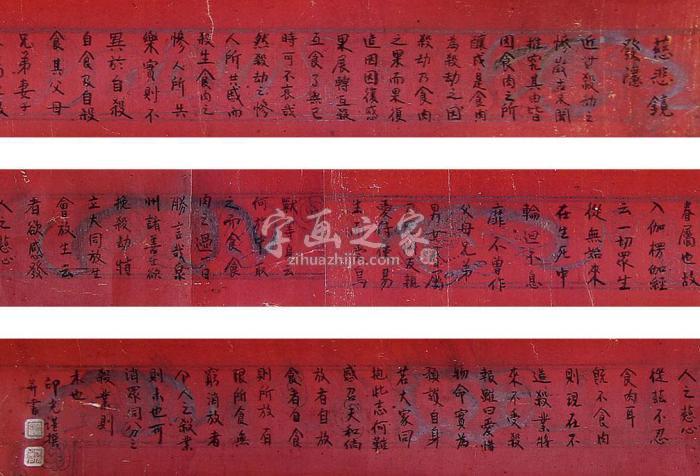 慈悲鏡
發隱
近世殺劫之
慘 未聞
推究其由皆
因食肉之所
釀成是食肉
為殺劫之因
殺劫乃食肉
之果而果復
造因因復感
果展轉互殺
互食了無已
時可不哀哉
然殺劫之慘
人所共惑而
殺生食肉之
慘人所共
樂實則不
異於自殺
自食及自殺
食其父母
兄弟妻子
眷屬也故
入伽楞伽經
云一切眾生
從無始來
在生死中
輪迴不息
靡不曾作
父母兄弟
男女眷屬
友親
愛侍使易
生 鳥
獸等云
何於中取
之而食食
肉之過百
勝言哉泉
州諸善士欲
挽殺劫特
立大同放生
會放生云
者欲感發
人之慈心
人之慈心
從茲不忍
食肉耳
既不食肉
則現在不
造殺業將
來不受殺
報雖曰愛惜
物命實為
預護自身
若大家同
抱此志何難
感召天和倘
放者自放
食者自食
則所放有
限所食無
窮消放者
个人之殺業
則未也可
消眾同分之
殺業則
未也
印光謹撰
并書
字画之家
zihuazhijia.com